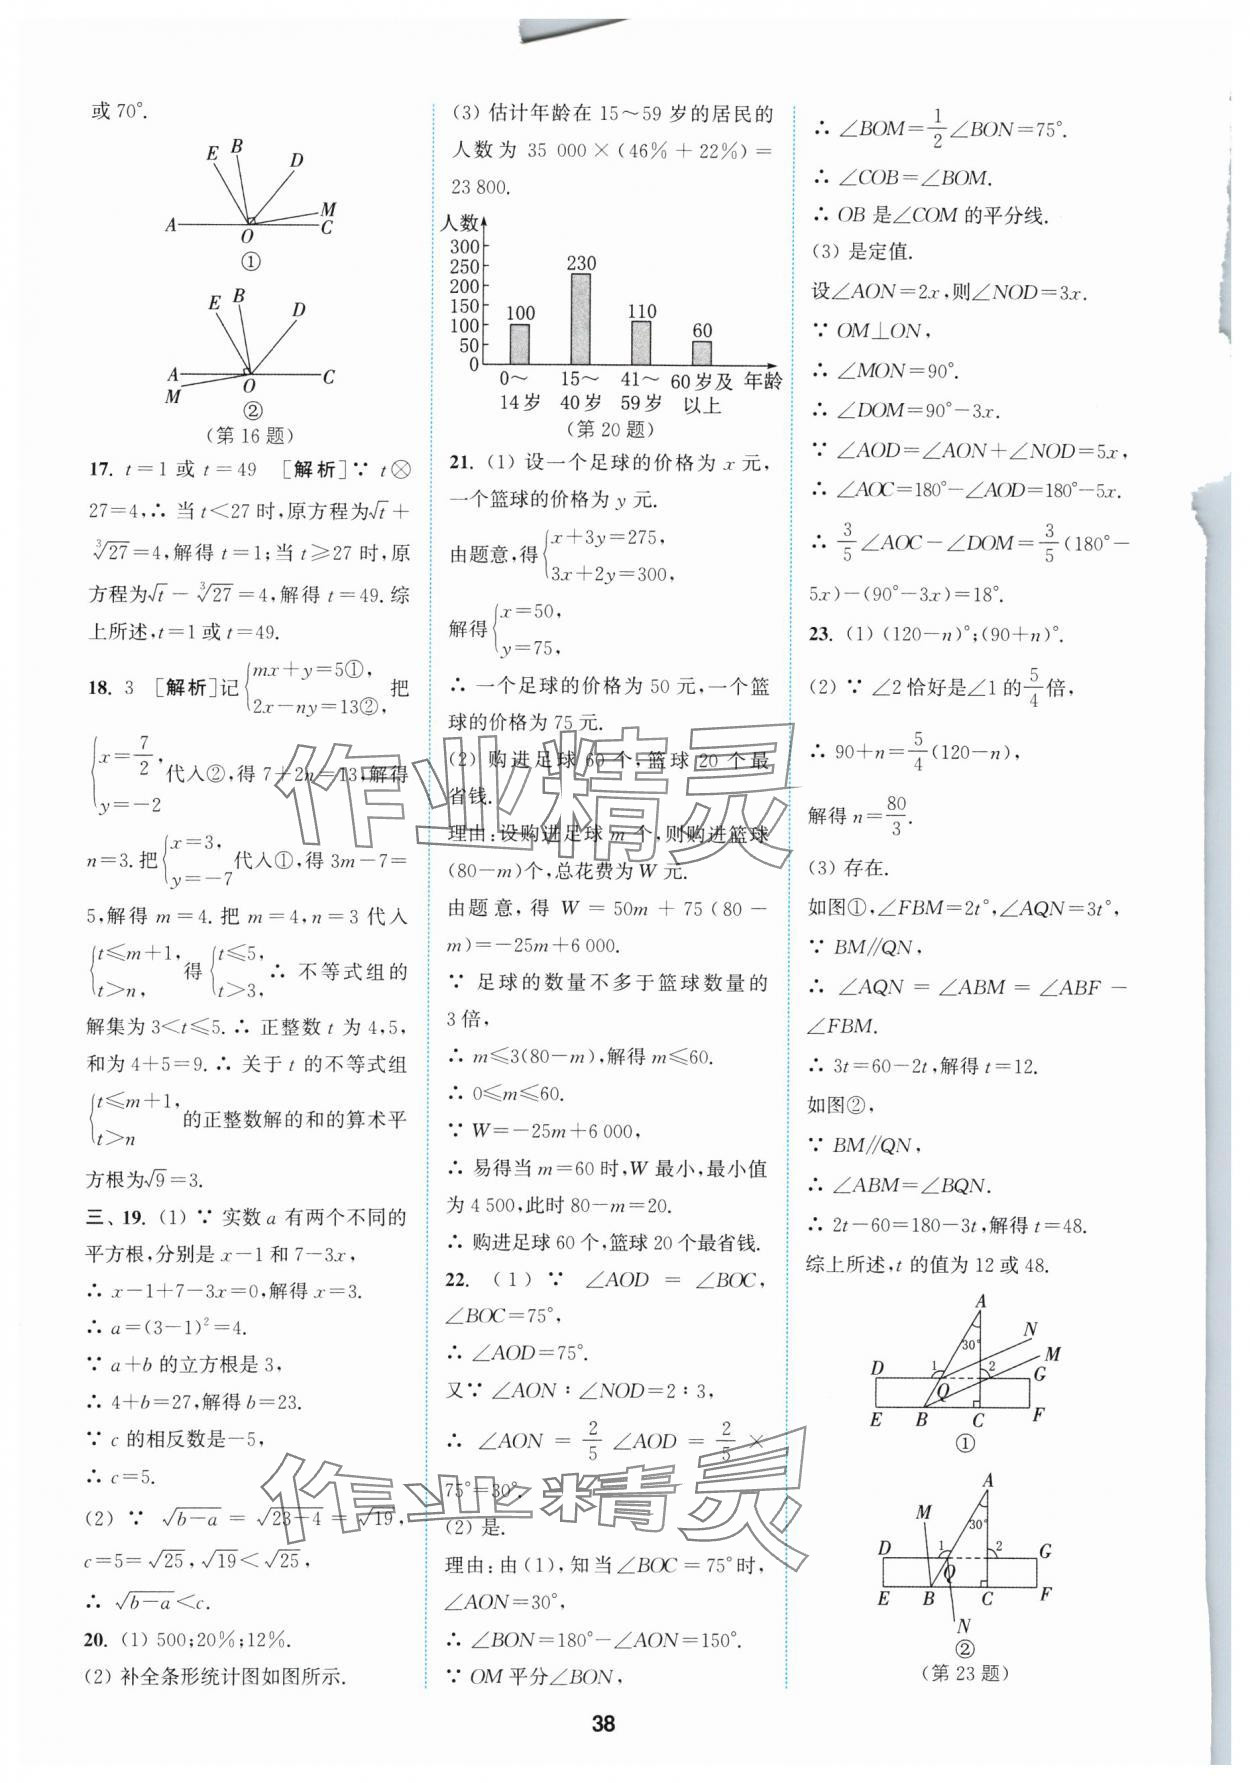 或 70°.
E B D
M
A O C
①
E B D
A O C
M
②
(第 16 题)
17. t=1 或 t=49 [解析]∵ t⊗
27=4,∴ 当 t<27 时,原方程为√t+
∛27=4,解得 t=1;当 t≥27 时,原
方程为√t-∛27=4,解得 t=49. 综
上所述,t=1 或 t=49.
18. 3 [解析]记{mx+y=5①, 2x-ny=13②, 把
{x=7/2, y=-2 代入②,得 7+2n=13,解得
n=3. 把{x=3, y=-7 代入①,得 3m-7=
5,解得 m=4. 把 m=4,n=3 代入
{t≤m+1, t>n, 得 {t≤5, t>3, ∴ 不等式组的
解集为 3<t≤5. ∴ 正整数 t 为 4,5,
和为 4+5=9. ∴ 关于 t 的不等式组
{t≤m+1, t>n 的正整数解的和的算术平
方根为√9=3.
三、19. (1) ∵ 实数 a 有两个不同的
平方根,分别是 x-1 和 7-3x,
∴ x-1+7-3x=0,解得 x=3.
∴ a=(3-1)²=4.
∵ a+b 的立方根是 3,
∴ 4+b=27,解得 b=23.
∵ c 的相反数是-5,
∴ c=5.
(2) ∵ √(b-a) = √(23-4) = √19,
c=5=√25,√19<√25,
∴ √(b-a)<c.
20. (1) 500;20%;12%.
(2) 补全条形统计图如图所示.
(3) 估计年龄在 15~59 岁的居民的
人数为 35 000×(46%+22%)=
23 800.
人数
300
250
200
150
100
50
0
100 230 110 60
0~14岁 15~40岁 41~59岁 60岁及以上 年龄
(第 20 题)
21. (1) 设一个足球的价格为 x 元,
一个篮球的价格为 y 元.
由题意,得{x+3y=275, 3x+2y=300,
解得{x=50, y=75,
∴ 一个足球的价格为 50 元,一个篮
球的价格为 75 元.
(2) 购进足球 60 个,篮球 20 个最
省钱.
理由:设购进足球 m 个,则购进篮球
(80-m)个,总花费为 W 元.
由题意,得 W = 50m + 75(80 -
m)=-25m+6 000.
∵ 足球的数量不多于篮球数量的
3 倍,
∴ m≤3(80-m),解得 m≤60.
∴ 0≤m≤60.
∵ W=-25m+6 000,
∴ 易得当 m=60 时,W 最小,最小值
为 4 500,此时 80-m=20.
∴ 购进足球 60 个,篮球 20 个最省钱.
22. (1) ∵ ∠AOD = ∠BOC,
∠BOC=75°,
∴ ∠AOD=75°.
又∵ ∠AON∶∠NOD=2∶3,
∴ ∠AON = 2/5 ∠AOD = 2/5 ×
75°=30°.
(2) 是.
理由:由(1),知当∠BOC=75°时,
∠AON=30°,
∴ ∠BON=180°-∠AON=150°.
∵ OM 平分∠BON,
∴ ∠BOM=1/2∠BON=75°.
∴ ∠COB=∠BOM.
∴ OB 是∠COM 的平分线.
(3) 是定值.
设∠AON=2x,则∠NOD=3x.
∵ OM⊥ON,
∴ ∠MON=90°.
∴ ∠DOM=90°-3x.
∵ ∠AOD=∠AON+∠NOD=5x,
∴ ∠AOC=180°-∠AOD=180°-5x.
∴ 3/5∠AOC-∠DOM=3/5(180°-
5x)-(90°-3x)=18°.
23. (1) (120-n)°;(90+n)°.
(2) ∵ ∠2 恰好是∠1 的5/4倍,
∴ 90+n=5/4(120-n),
解得 n=80/3.
(3) 存在.
如图①,∠FBM=2t°,∠AQN=3t°,
∵ BM∥QN,
∴ ∠AQN = ∠ABM = ∠ABF -
∠FBM.
∴ 3t=60-2t,解得 t=12.
如图②,
∵ BM∥QN,
∴ ∠ABM=∠BQN.
∴ 2t-60=180-3t,解得 t=48.
综上所述,t 的值为 12 或 48.
A
30° N
D 1 2 M
Q G
E B C F
①
A
M 30°
D 1 2 G
Q
E B C F
N
②
(第 23 题)
作业精灵
作业精灵
38